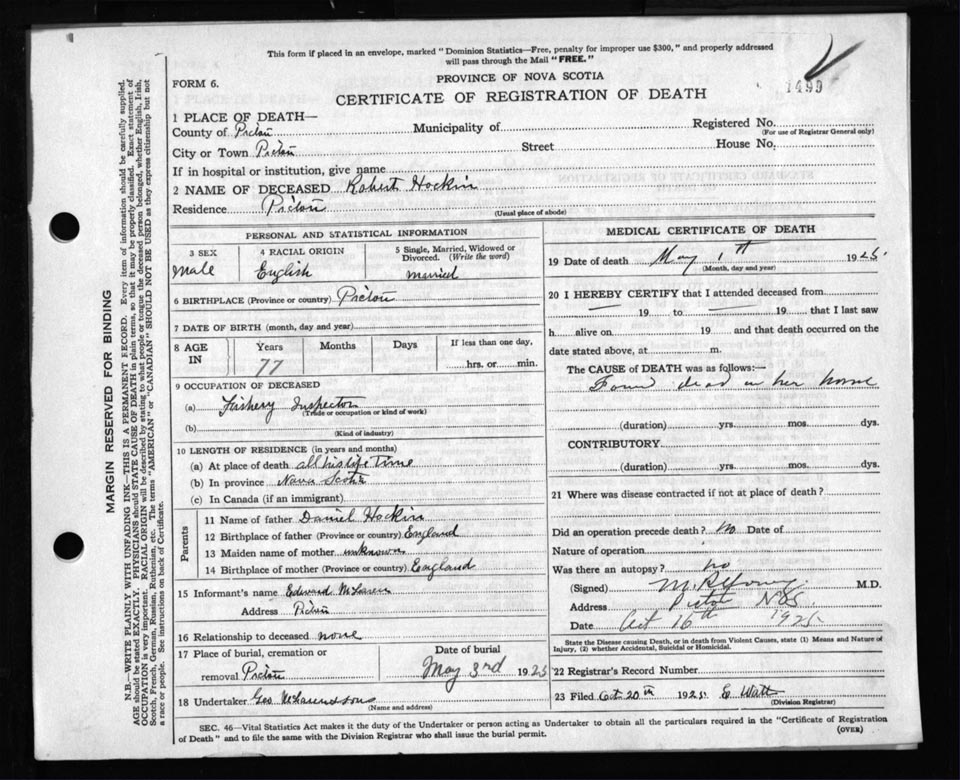 This form if placed in an envelope, marked "Dominion Statistics—Free, penalty for improper use $300," and properly addressed
will pass through the Mail "FREE."
1499
PROVINCE OF NOVA SCOTIA
FORM 6.
CERTIFICATE OF REGISTRATION OF DEATH
1 PLACE OF DEATH—
County of Pictou Municipality of Registered No.
(For use of Registrar General only)
City or Town Pictou Street House No.
If in hospital or institution, give name
2 NAME OF DECEASED Robert Hockin
Residence Pictou
(Usual place of abode)
PERSONAL AND STATISTICAL INFORMATION
3 SEX 4 RACIAL ORIGIN 5 Single, Married, Widowed or
Divorced. (Write the word)
Male English Married
6 BIRTHPLACE (Province or country) Pictou
7 DATE OF BIRTH (month, day and year)
8 AGE IN Years Months Days If less than one day,
77 hrs. or min.
9 OCCUPATION OF DECEASED
(a) Fishery Inspector
(Trade or occupation or kind of work)
(b)
(Kind of industry)
10 LENGTH OF RESIDENCE (in years and months)
(a) At place of death all his life Time
(b) In province Nova Scotia
(c) In Canada (if an immigrant)
Parents
11 Name of father Daniel Hockin
12 Birthplace of father (Province or country) England
13 Maiden name of mother unknown
14 Birthplace of mother (Province or country) England
15 Informant's name Edward McLaren
Address Pictou
16 Relationship to deceased none
17 Place of burial, cremation or Date of burial
removal Pictou May 3rd 1925
18 Undertaker Geo
(Name and address)
MEDICAL CERTIFICATE OF DEATH
19 Date of death May 1th 1925
(Month, day and year)
20 I HEREBY CERTIFY that I attended deceased from
19 to 19 that I last saw
h alive on 19 and that death occurred on the
date stated above, at m.
The CAUSE of DEATH was as follows:—
Found dead in her home
(duration) yrs. mos. dys.
CONTRIBUTORY
(duration) yrs. mos. dys.
21 Where was disease contracted if not at place of death?
Did an operation precede death? no Date of
Nature of operation
Was there an autopsy? no
(Signed) M.D.
Address Pictou N.S.
Date Oct 16th 1925
State the Disease causing Death, or in death from Violent Causes, state (1) Means and Nature of
Injury, (2) whether Accidental, Suicidal or Homicidal.
22 Registrar's Record Number
23 Filed Oct. 20th 1925 E Watt
(Division Registrar)
SEC. 46—Vital Statistics Act makes it the duty of the Undertaker or person acting as Undertaker to obtain all the particulars required in the "Certificate of Registration
of Death" and to file the same with the Division Registrar who shall issue the burial permit.
(OVER)
MARGIN RESERVED FOR BINDING
N.B.—WRITE PLAINLY WITH UNFADING INK—THIS IS A PERMANENT RECORD. Every item of information should be carefully supplied.
AGE should be stated EXACTLY. PHYSICIANS should STATE CAUSE OF DEATH in plain terms, so that it may be properly classified. Exact statement of
OCCUPATION is very important. RACIAL ORIGIN will be described by stating to what people or tongue the deceased person belonged, whether English, Irish,
Scotch, French, German, Russian, Ruthenian, etc. The terms "AMERICAN" or "CANADIAN" SHOULD NOT BE USED as they express citizenship but not
a race or people. See instructions on back of Certificate.